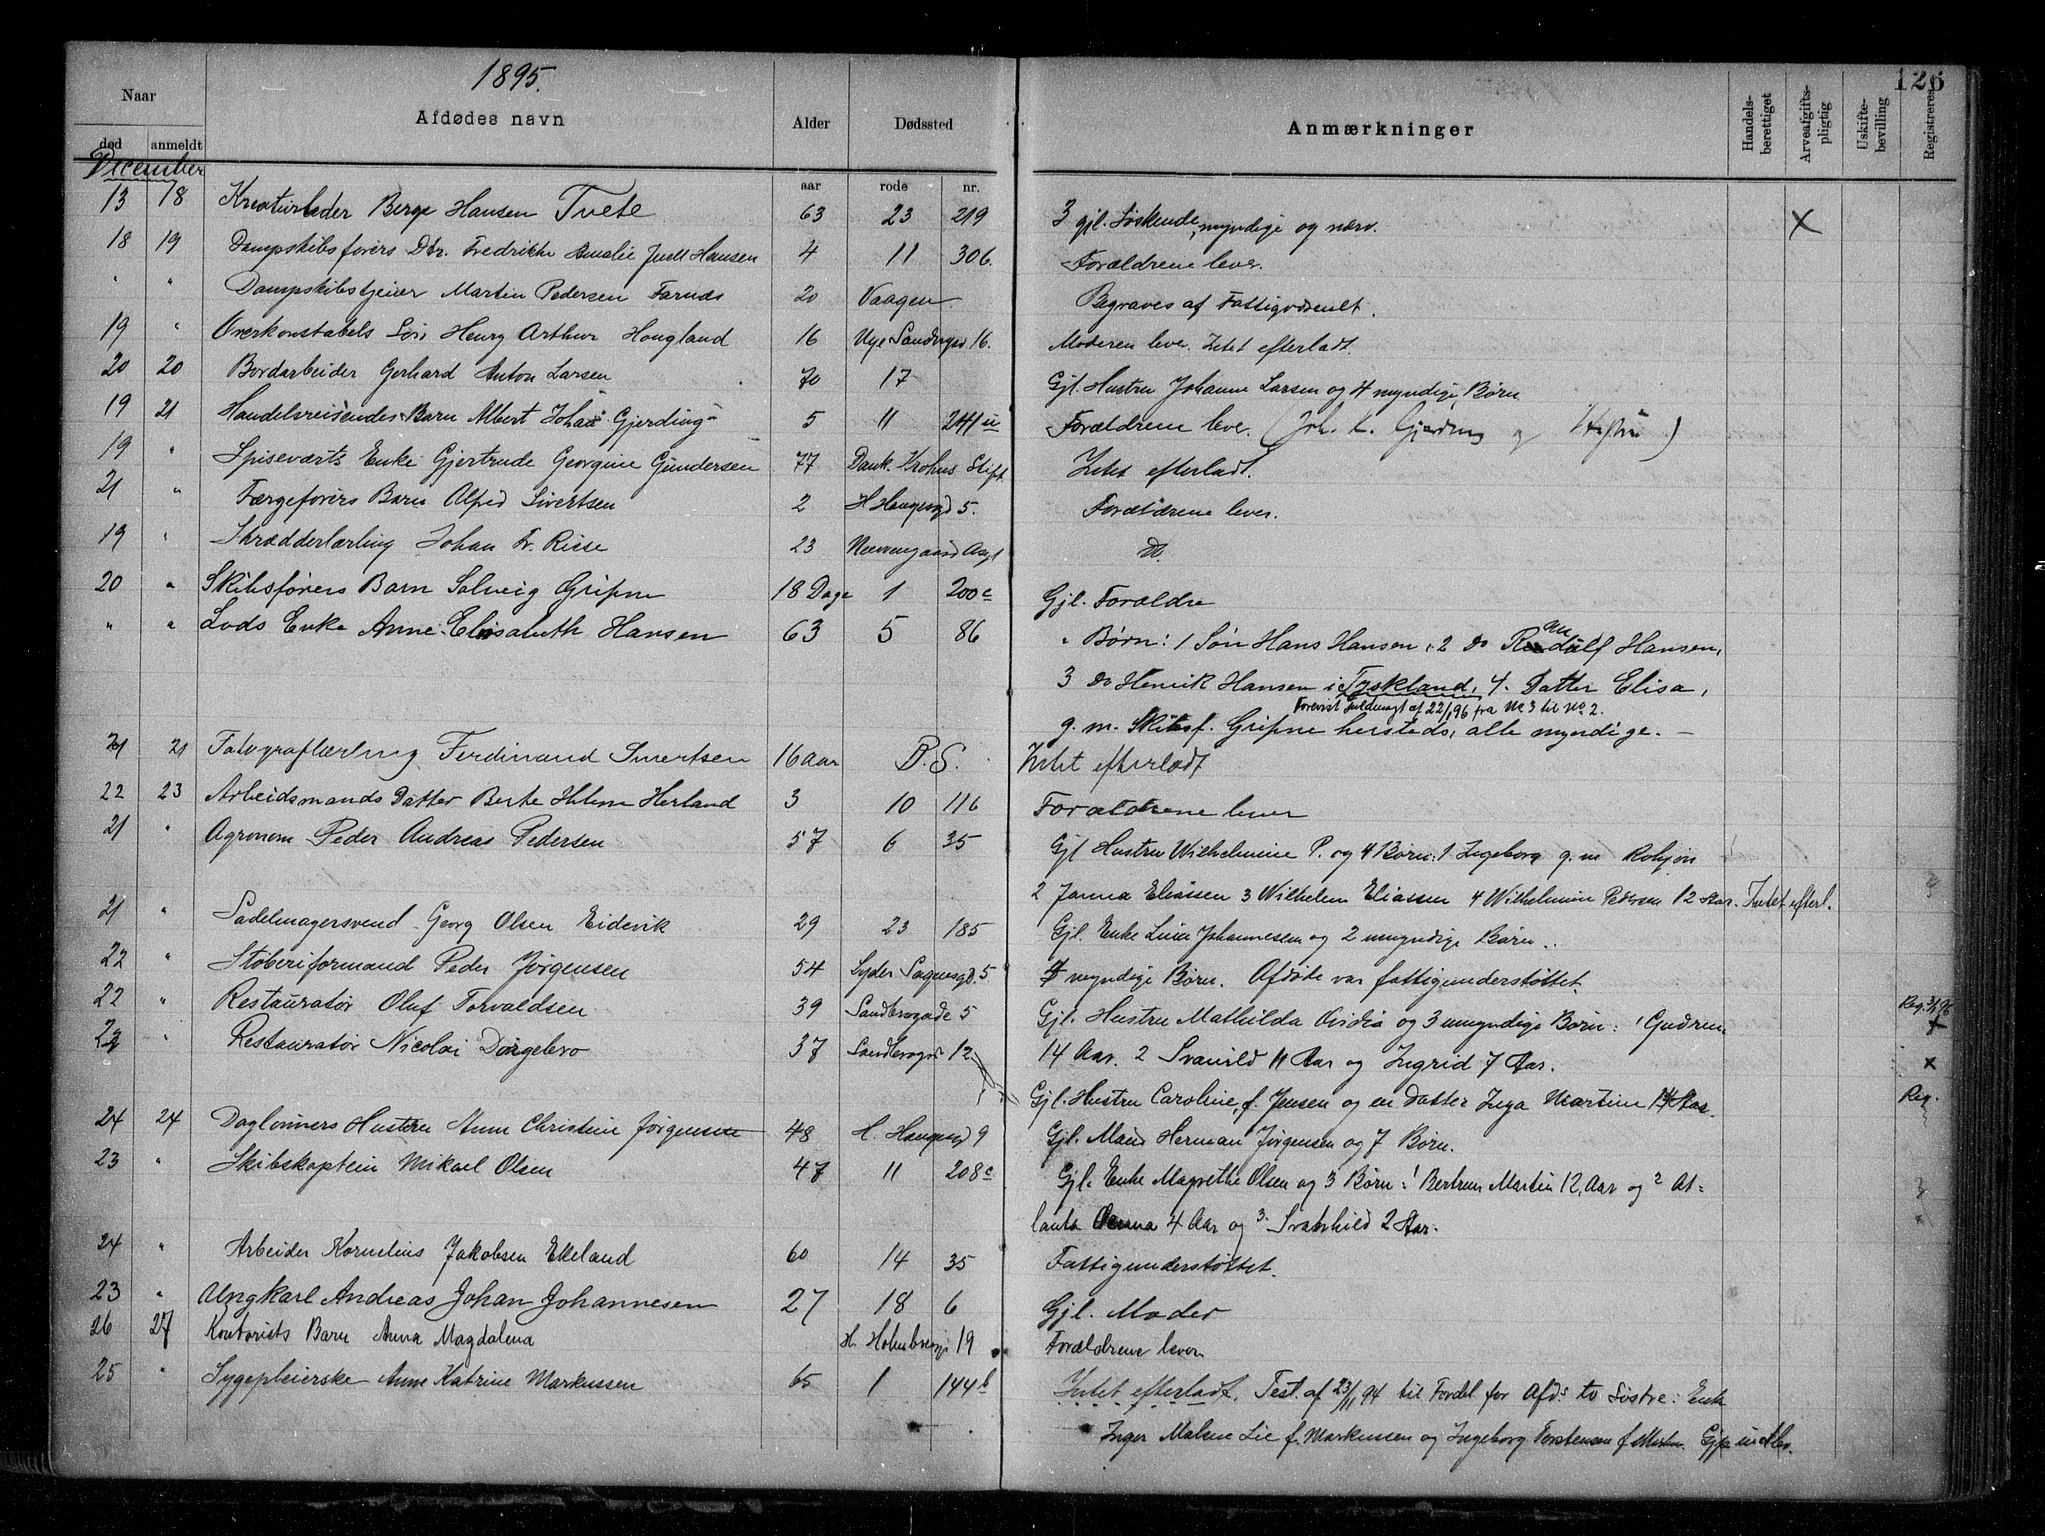 1895.
126
Naar
Afdødes navn
Alder
Dødssted
Anmærkninger
Handels-berettiget
Arveafgifts-pligtig
Uskifte-bevilling
Registreres
død anmeldt
December
aar rode nr.
13 18 Berge Hansen Tvete 63 23 219 3 gjl. Søskende, myndige og nærv. X
18 19 Dampskibsførers Dtr. Fredrikke Amalie Juell Hansen 4 11 306. Forældrene lever.
" " Dampskibstjener Martin Pedersen Farnæs 20 Vaagen Begraves af Fattigvæsenet.
19 " Overkonstabels Søn Henry Arthur Hougland 16 Nye Sandvigsv. 16. Moderen lever. Intet efterladt.
20 20 Bordarbeider Gerhard Anton Larsen 70 17 Gjl. Hustru Johanne Larsen og 4 myndige Børn
19 21 Handelsreisendes Barn Albert Johan Gjerding 5 11 241 u Forældrene lever. (Joh. K. Gjerding og Hustru)
19 " Spiseværts Enke Gjertrude Georgine Gundersen 77 Dank. Krohns Stift. Intet efterladt.
21 " Færgeførers Barn Alfred Sivertsen 2 H. Haugesgd 5. Forældrene lever.
19 " Skrædderlærling Johan Fr. Riise 23 Neevengaard Asyl do.
20 " Skibsførers Barn Solveig Gripne 18 Dage 1 200c Gjl. Forældre
" " Lods Enke Anne Elisabeth Hansen 63 5 86 " Børn: 1 Søn Hans Hansen, 2 do Randulf Hansen,
3 do Henrik Hansen i Tyskland, 4. Datter Elisa,
Forevist Fuldmagt af 22/1 96 fra No 3 til No 2.
g. m. Skibsf. Gripne hersteds, alle myndige. —
21 21 Fotograflærling Ferdinand Sivertsen 16 aar B. S. Intet efterladt
22 23 Arbeidsmands Datter Berte Helene Herland 3 10 116 Forældrene lever
21 " Agronom Peder Andreas Pedersen 57 6 35 Gjl Hustru Wilhelmine P. og 4 Børn: 1 Ingeborg g. m
2 Janna Eliassen 3 Wilhelm Eliassen 4 Wilhelmine Pedersen 12 Aar. Intet efterl.
21 " Sadelmagersvend Georg Olsen Eidevik 29 23 185 Gjl. Enke Lina Johannesen og 2 umyndige Børn.
22 " Støberiformand Peder Jørgensen 54 5 myndige Børn. Afdøde var fattigunderstøttet.
22 " Restauratør Oluf Torvaldsen 39 Sandbrogade 5 Gjl. Hustru Mathilda Ovidia og 3 umyndige Børn: 1 Gudrun
14 Aar, 2 Svanild 11 Aar og Ingrid 7 Aar.
22 " Restauratør Nicolai Dargebro 37 Sandbrogd 12 Gjl. Hustru Caroline, f. Jensen og en Datter Inga Martine 14 Aar. Reg.
24 24 Daglønners Hustru Anne Christine Jørgensen 48 H. Haugesgd 9 Gjl. Mand Herman Jørgensen og 7 Børn.
23 " Skibskaptein Mikael Olsen 47 11 208c Gjl. Enke Magrethe Olsen og 3 Børn: 1 Bertrum Martin 12 Aar og 2 At-
lanta 4 Aar og 3. Svanhild 2 Aar.
24 " Arbeider Kornelius Jakobsen Ekeland 60 14 35 Fattigunderstøttet.
23 " Andreas Johan Johannesen 27 18 6 Gjl. Moder
26 27 Kontorists Barn Anna Magdalena H. 19 Forældrene lever
25 " Sygepleierske Anne Katrine Markussen 65 1 144b Intet efterladt. Test. af 23/11 94 til Fordel for Afds to Søstre: Enke
Inger Malene Lie f. Markussen og Ingeborg Torstensen f.